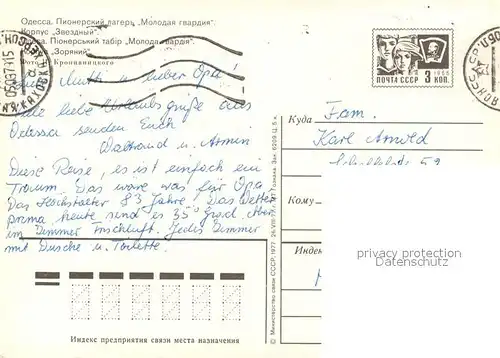 Одесса. Пионерский лагерь „Молодая гвардия".
Корпус „Звездный".
Одеса. Піонерський табір „Молода гвардія".
„Зоряний"
Кропивницкого
Mutti u. lieber Opa!
liebe Urlaubsgrüße aus
Odessa senden Euch
Waltraud u. Armin
Diese Reise, es ist einfach ein
Traum. Das wäre was für Opa
Das Höchstalter 83 Jahre. Das Wetter
prima heute sind es 35° Grad. Aber
im Zimmer Frischluft. Jedes Zimmer
mit Dusche u. Toilette.
ПОЧТА СССР 1966 3 КОП.
Куда
Fam.
Karl Arnold
59
Кому
Индекс
privacy protection
Datenschutz
© Министерство связи СССР, 1977
Индекс предприятия связи места назначения